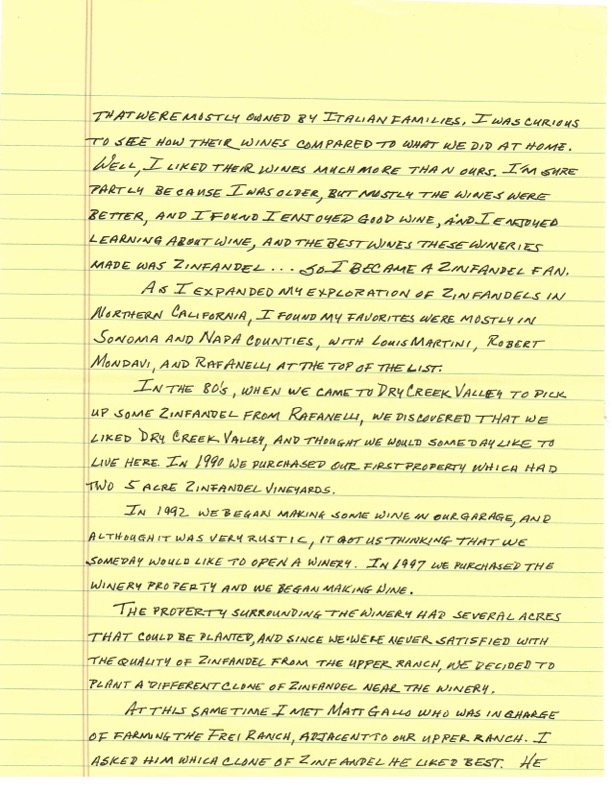 THAT WERE MOSTLY OWNED BY ITALIAN FAMILIES. I WAS CURIOUS
TO SEE HOW THEIR WINES COMPARED TO WHAT WE DID AT HOME.
WELL, I LIKED THEIR WINES MUCH MORE THAN OURS. I'M SURE
PARTLY BECAUSE I WAS OLDER, BUT MOSTLY THE WINES WERE
BETTER, AND I FOUND I ENJOYED GOOD WINE, AND I ENJOYED
LEARNING ABOUT WINE, AND THE BEST WINES THESE WINERIES
MADE WAS ZINFANDEL ... SO I BECAME A ZINFANDEL FAN.
AS I EXPANDED MY EXPLORATION OF ZINFANDELS IN
NORTHERN CALIFORNIA, I FOUND MY FAVORITES WERE MOSTLY IN
SONOMA AND NAPA COUNTIES, WITH LOUIS MARTINI, ROBERT
MONDAVI, AND RAFANELLI AT THE TOP OF THE LIST.
IN THE 80'S, WHEN WE CAME TO DRY CREEK VALLEY TO PICK
UP SOME ZINFANDEL FROM RAFANELLI, WE DISCOVERED THAT WE
LIKED DRY CREEK VALLEY, AND THOUGHT WE WOULD SOMEDAY LIKE TO
LIVE HERE. IN 1990 WE PURCHASED OUR FIRST PROPERTY WHICH HAD
TWO 5 ACRE ZINFANDEL VINEYARDS.
IN 1992 WE BEGAN MAKING SOME WINE IN OUR GARAGE, AND
ALTHOUGH IT WAS VERY RUSTIC, IT GOT US THINKING THAT WE
SOMEDAY WOULD LIKE TO OPEN A WINERY. IN 1997 WE PURCHASED THE
WINERY PROPERTY AND WE BEGAN MAKING WINE.
THE PROPERTY SURROUNDING THE WINERY HAD SEVERAL ACRES
THAT COULD BE PLANTED, AND SINCE WE WERE NEVER SATISFIED WITH
THE QUALITY OF ZINFANDEL FROM THE UPPER RANCH, WE DECIDED TO
PLANT A DIFFERENT CLONE OF ZINFANDEL NEAR THE WINERY.
AT THIS SAME TIME I MET MATT GALLO WHO WAS IN CHARGE
OF FARMING THE FREI RANCH, ADJACENT TO OUR UPPER RANCH. I
ASKED HIM WHICH CLONE OF ZINFANDEL HE LIKED BEST. HE